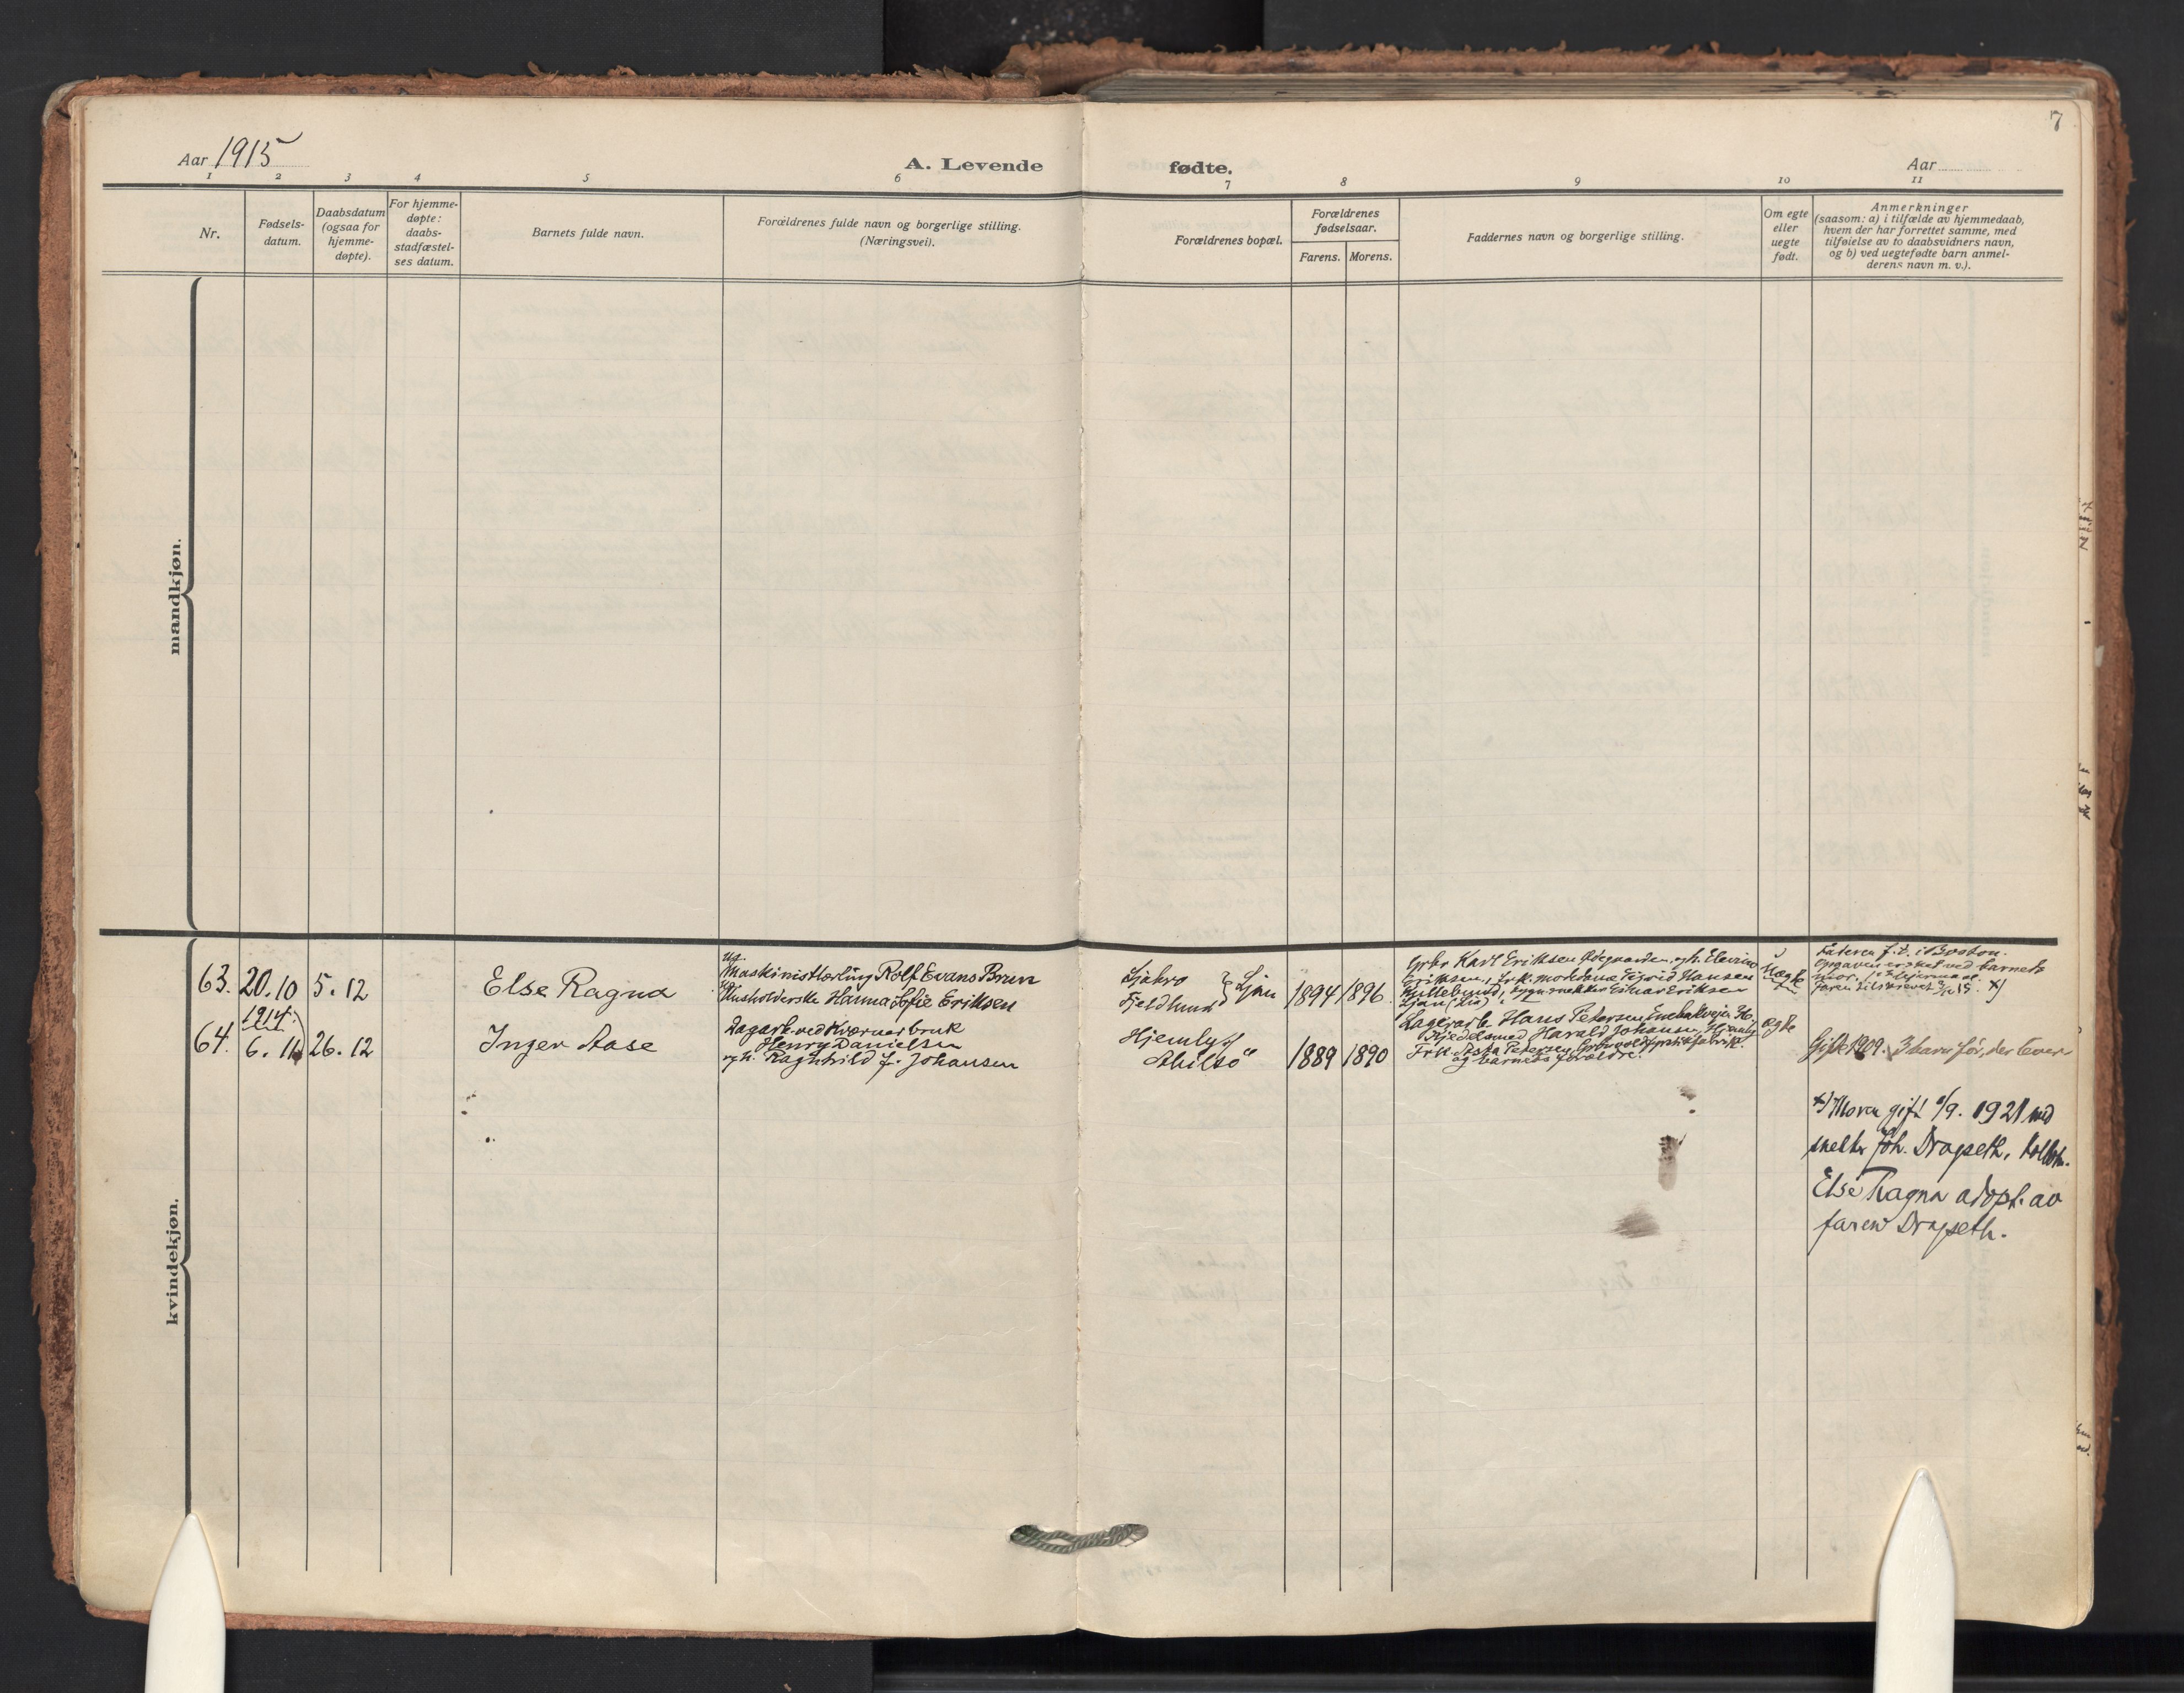 7
Aar 1915
A. Levende
fødte.
Aar
1 2 3 4 5 6 7 8 9 10 11
Nr.
Fødsels-
datum.
Daabsdatum
(ogsaa for
hjemme-
døpte).
For hjemme-
døpte:
daabs-
stadfæstel-
ses datum.
Barnets fulde navn.
Forældrenes fulde navn og borgerlige stilling.
(Næringsvei).
Forældrenes bopæl.
Forældrenes
fødselsaar.
Farens. Morens.
Faddernes navn og borgerlige stilling.
Om egte
eller
uegte
født.
Anmerkninger
(saasom: a) i tilfælde av hjemmedaab,
hvem der har forrettet samme, med
tilføielse av to daabsvidners navn,
og b) ved uegtefødte barn anmel-
derens navn m. v.).
mandkjøn.
kvindekjøn.
63. 20.10 5.12
Else Ragna
ug.
Maskinistlærling Rolf Evans Brun
Husholderske Hanna Sofie Eriksen
Ljabro
Fjeldlund } Ljan
1894 1896
Grbr Karl Eriksen Ødegaarden, og h. Elevine
Eriksen, Frk. Sigrid Hansen
Einar Eriksen
Ljan
Uegte
Faderen f. t. i Boston.
ved barnets
mor.
15. x)
64. 1914
6. 11 26.12
Inger Aase
Dagarb. ved Kværner bruk
Henry Danielsen
og h. Ragnhild J. Johansen
Hjemly
Abilsø
1889 1890
Lagerarb. Hans Petersen Enebakvejen
Kjedelsmed Harald Johansen, Hjemly
Frk. Petersen
og barnets forældre.
ægte
Gifte 1909. 3 barn før, der lever
x) Moren gift /9. 1921 med
snekker Joh. Dragseth, Kolbotn.
Else Ragna adopt. av
faren Dragseth.